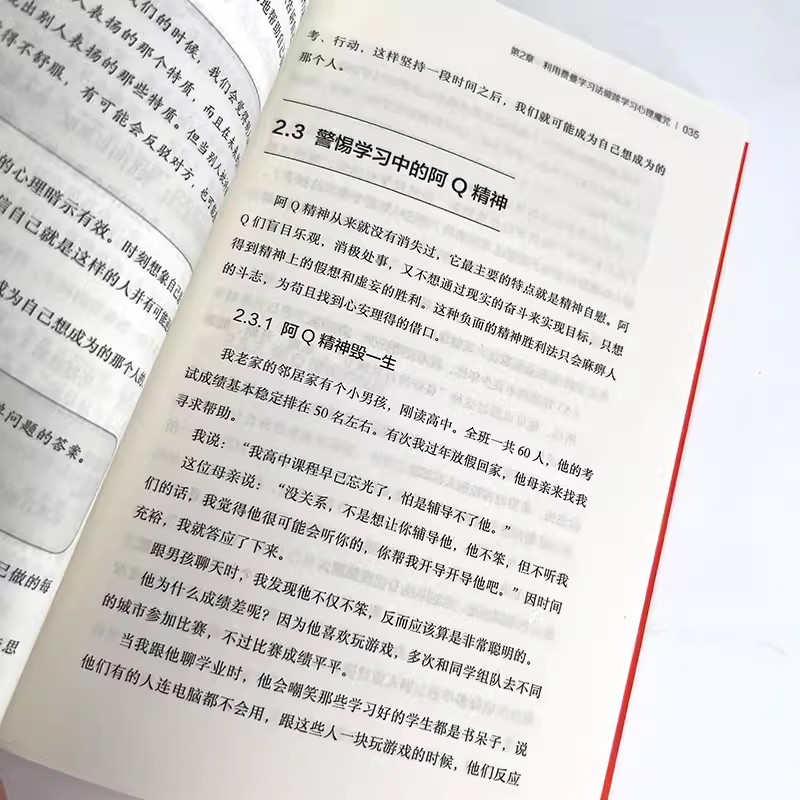 们的时候,我们会觉得
出别人表扬的那个特质,而且在未
得不舒服,有可能会反驳对方,也
的心理暗示有效。时刻想象自己
信自己就是这样的人并有可能
成为自己想成为的那个人的
问题的答案。
己做的每
思
第2章 利用费曼学习法破除学习心理魔咒 | 035
考、行动,这样坚持一段时间之后,我们就可能成为自己想成为的
那个人。
2.3 警惕学习中的阿Q精神
阿Q精神从来就没有消失过,它最主要的特点就是精神自慰。阿
Q们盲目乐观,消极处事,又不想通过现实的奋斗来实现目标,只想
得到精神上的假想和虚妄的胜利。这种负面的精神胜利法只会麻痹人
的斗志,为苟且找到心安理得的借口。
2.3.1 阿Q精神毁一生
我老家的邻居家有个小男孩,刚读高中。全班一共60人,他的考
试成绩基本稳定排在50名左右。有次我过年放假回家,他母亲来找我
寻求帮助。
我说:“我高中课程早已忘光了,怕是辅导不了他。”
这位母亲说:“没关系,不是想让你辅导他,他不笨,但不听我
们的话,我觉得他很可能会听你的,你帮我开导开导他吧。”因时间
充裕,我就答应了下来。
跟男孩聊天时,我发现他不仅不笨,反而应该算是非常聪明的。
他为什么成绩差呢?因为他喜欢玩游戏,多次和同学组队去不同
的城市参加比赛,不过比赛成绩平平。
当我跟他聊学业时,他会嘲笑那些学习好的学生都是书呆子,说
他们有的人连电脑都不会用,跟这些人一块玩游戏的时候,他们反应